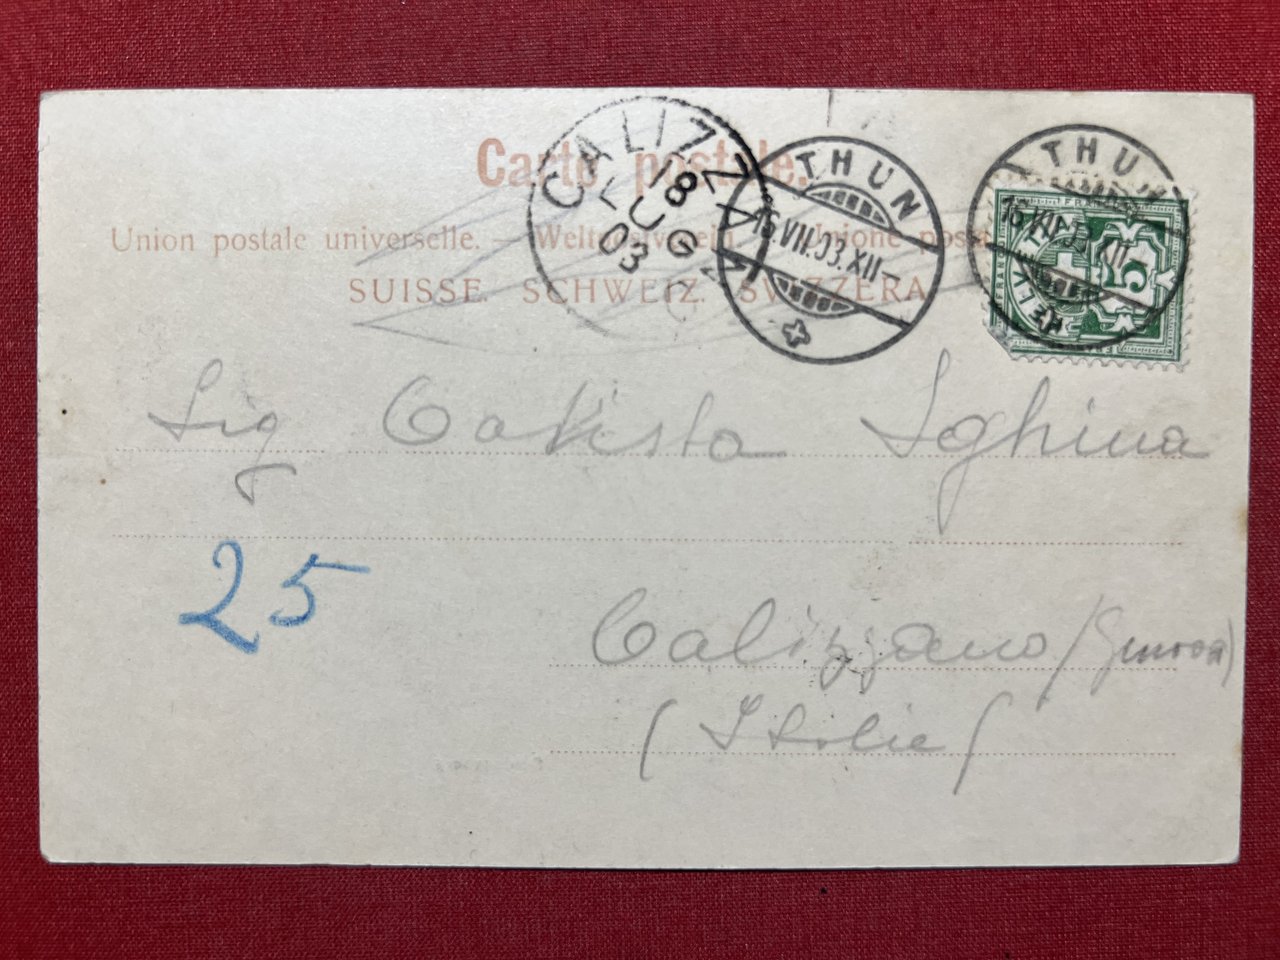 Carte postale.
Union postale universelle. — Weltpostverein. — Unione posta
SUISSE. SCHWEIZ. SVIZZERA
CALIZZANO
18 LUG 03
THUN
16.VII.03.XII—
THUN
16.VII.03.XII
FRAN
HELVETIA
5
Sig Batista Sghina
25
Calizzano (Genova)
(Italie)